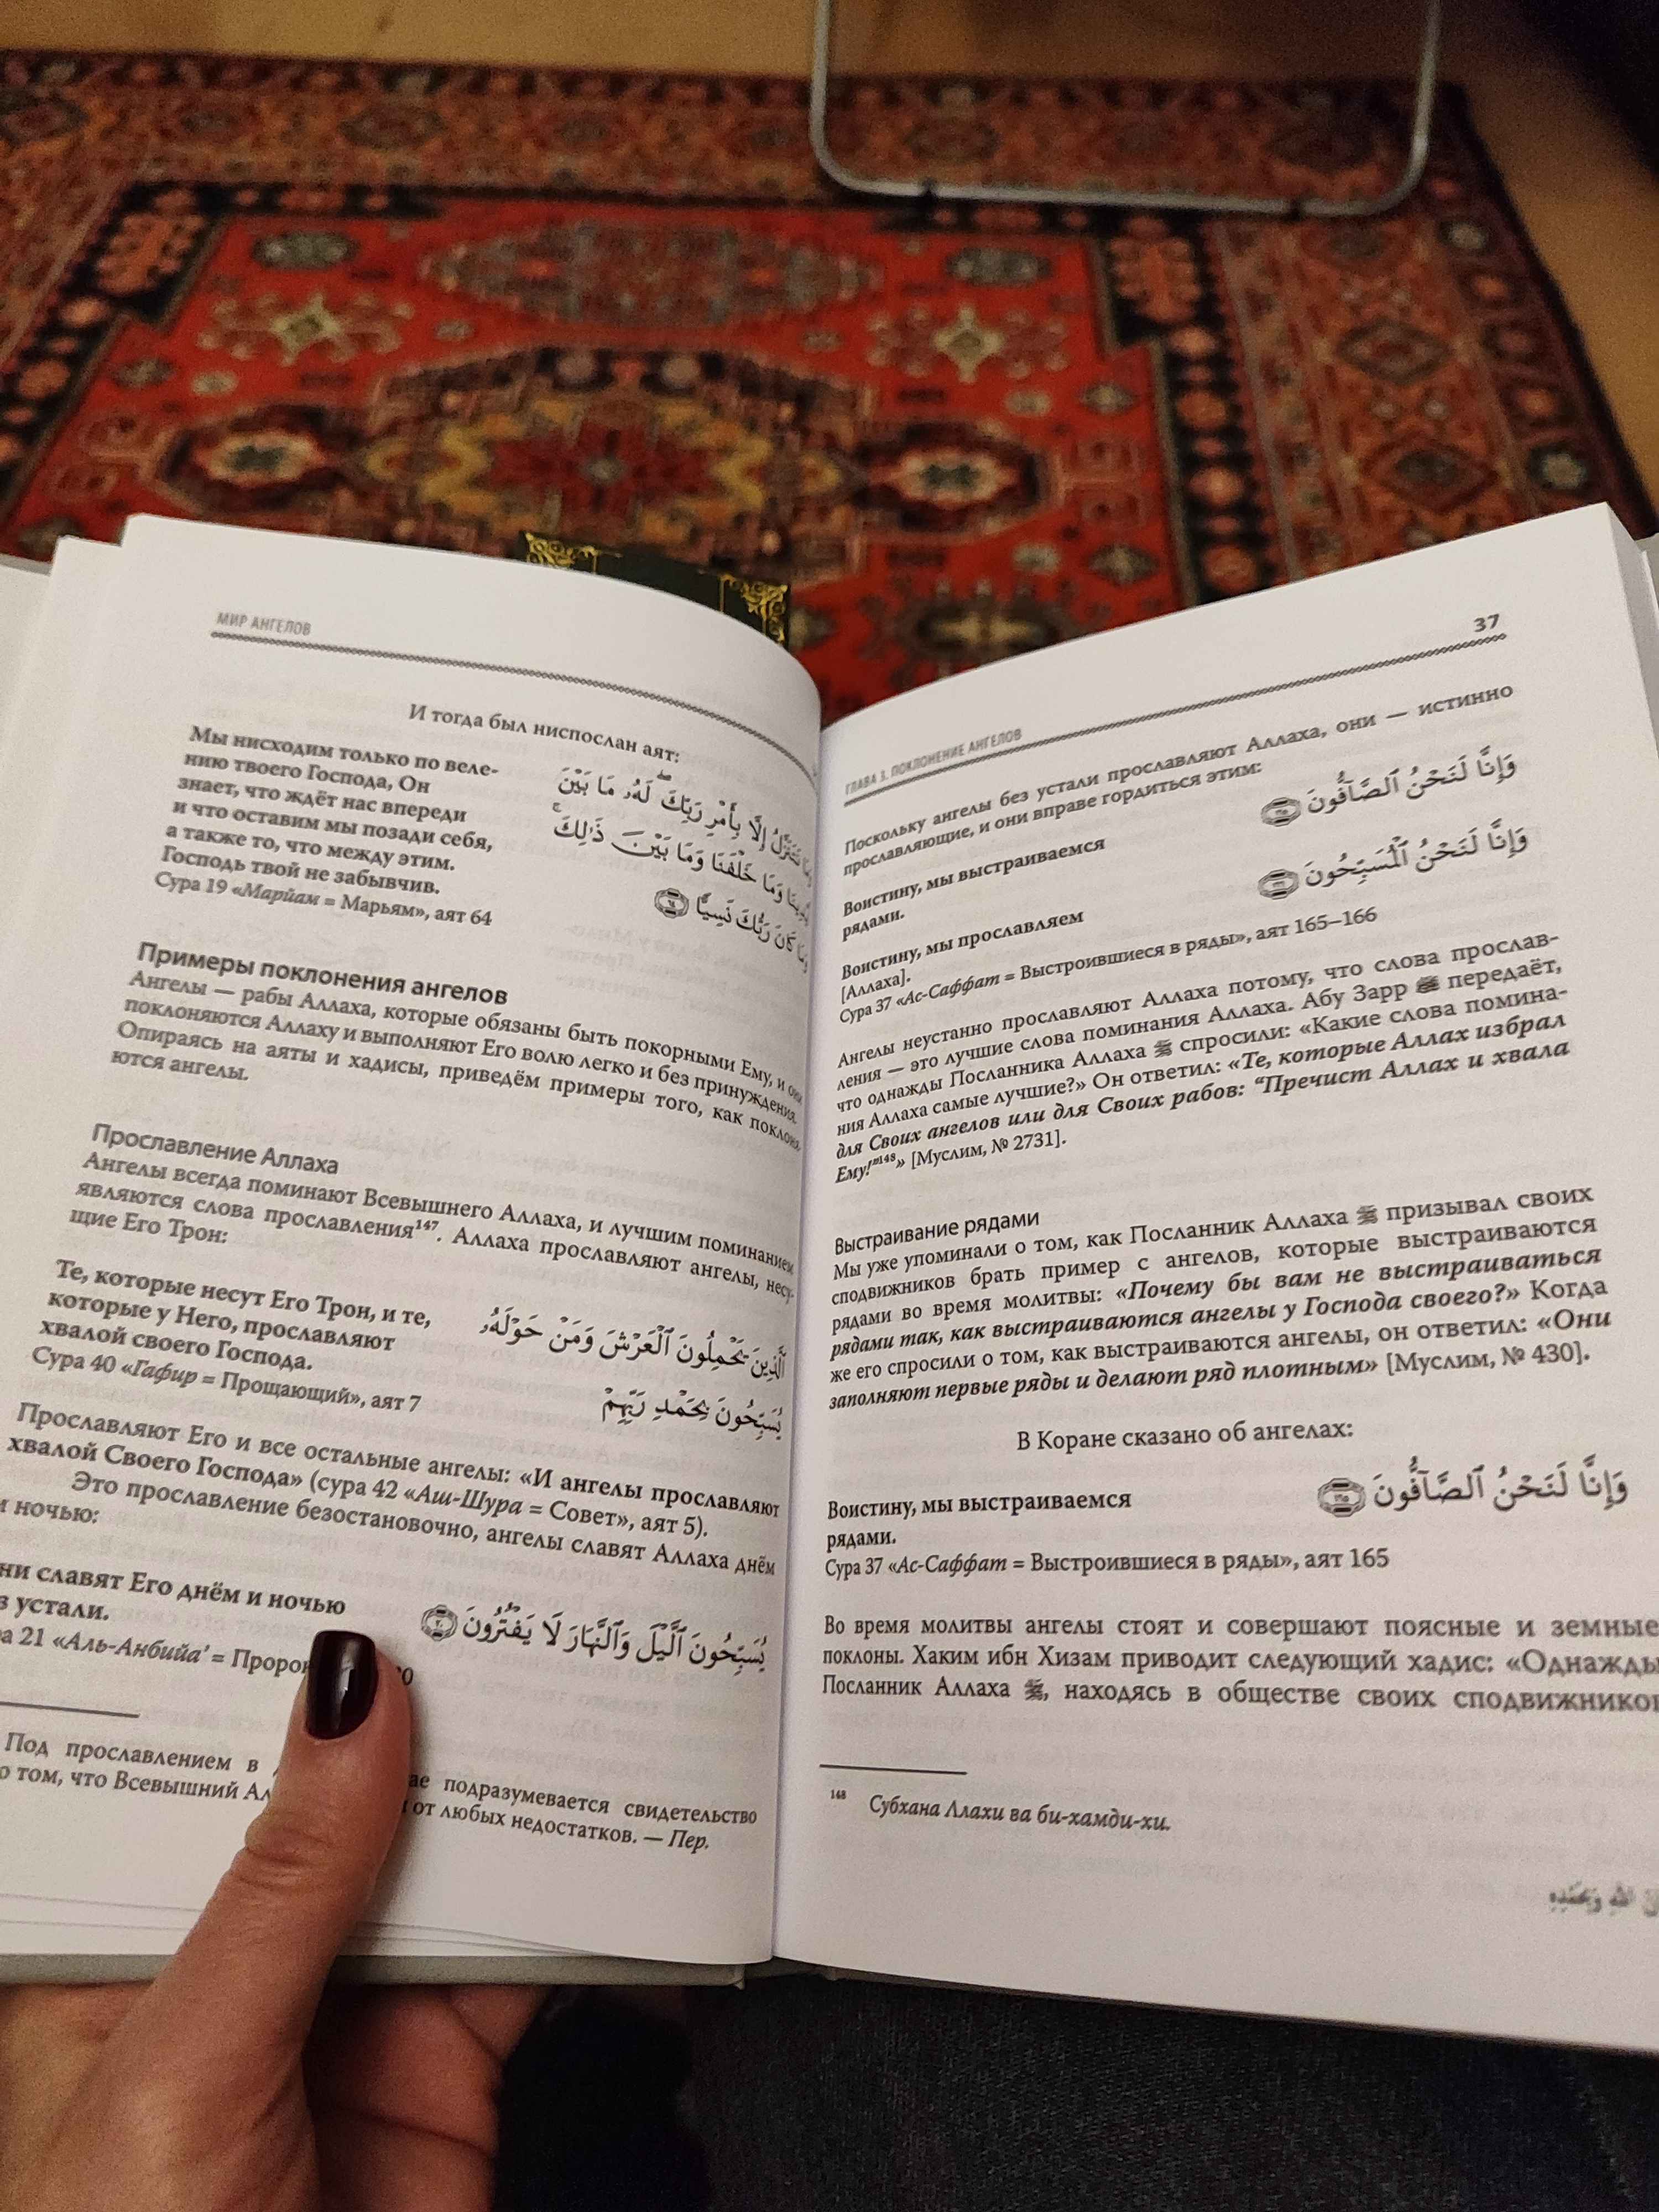 МИР АНГЕЛОВ
И тогда был ниспослан аят:
Мы нисходим только по веле-
нию твоего Господа, Он
знает, что ждёт нас впереди
и что оставим мы позади себя,
а также то, что между этим.
Господь твой не забывчив.
Сура 19 «Марйам = Марьям», аят 64
نَتَنَزَّلُ إِلَّا بِأَمْرِ رَبِّكَ لَهُۥ مَا بَيْنَ
وَمَا خَلْفَنَا وَمَا بَيْنَ ذَٰلِكَ
كَانَ رَبُّكَ نَسِيًّا ٦٤
Примеры поклонения ангелов
Ангелы — рабы Аллаха, которые обязаны быть покорными Ему, и они
поклоняются Аллаху и выполняют Его волю легко и без принуждения.
Опираясь на аяты и хадисы, приведём примеры того, как поклоня-
ются ангелы.
Прославление Аллаха
Ангелы всегда поминают Всевышнего Аллаха, и лучшим поминанием
являются слова прославления147. Аллаха прославляют ангелы, несу-
щие Его Трон:
Те, которые несут Его Трон, и те,
которые у Него, прославляют
хвалой своего Господа.
Сура 40 «Гафир = Прощающий», аят 7
ٱلَّذِينَ يَحْمِلُونَ ٱلْعَرْشَ وَمَنْ حَوْلَهُۥ
يُسَبِّحُونَ بِحَمْدِ رَبِّهِمْ
Прославляют Его и все остальные ангелы: «И ангелы прославляют
хвалой Своего Господа» (сура 42 «Аш-Шура = Совет», аят 5).
Это прославление безостановочно, ангелы славят Аллаха днём
и ночью:
ни славят Его днём и ночью
з устали.
ра 21 «Аль-Анбийа’ = Пророк
يُسَبِّحُونَ ٱلَّيْلَ وَٱلنَّهَارَ لَا يَفْتُرُونَ ٢٠
Под прославлением в ае подразумевается свидетельство
о том, что Всевышний Ал от любых недостатков. — Пер.
37
ГЛАВА 3. ПОКЛОНЕНИЕ АНГЕЛОВ
Поскольку ангелы без устали прославляют Аллаха, они — истинно
прославляющие, и они вправе гордиться этим:
Воистину, мы выстраиваемся
рядами.
وَإِنَّا لَنَحْنُ ٱلصَّآفُّونَ ١٦٥
Воистину, мы прославляем
[Аллаха].
وَإِنَّا لَنَحْنُ ٱلْمُسَبِّحُونَ ١٦٦
Сура 37 «Ас-Саффат = Выстроившиеся в ряды», аят 165–166
Ангелы неустанно прославляют Аллаха потому, что слова прослав-
ления — это лучшие слова поминания Аллаха. Абу Зарр передаёт,
что однажды Посланника Аллаха ﷺ спросили: «Какие слова помина-
ния Аллаха самые лучшие?» Он ответил: «Те, которые Аллах избрал
для Своих ангелов или для Своих рабов: “Пречист Аллах и хвала
Ему!”148» [Муслим, № 2731].
Выстраивание рядами
Мы уже упоминали о том, как Посланник Аллаха ﷺ призывал своих
сподвижников брать пример с ангелов, которые выстраиваются
рядами во время молитвы: «Почему бы вам не выстраиваться
рядами так, как выстраиваются ангелы у Господа своего?» Когда
же его спросили о том, как выстраиваются ангелы, он ответил: «Они
заполняют первые ряды и делают ряд плотным» [Муслим, № 430].
В Коране сказано об ангелах:
Воистину, мы выстраиваемся
рядами.
وَإِنَّا لَنَحْنُ ٱلصَّآفُّونَ ١٦٥
Сура 37 «Ас-Саффат = Выстроившиеся в ряды», аят 165
Во время молитвы ангелы стоят и совершают поясные и земные
поклоны. Хаким ибн Хизам приводит следующий хадис: «Однажды
Посланник Аллаха ﷺ, находясь в обществе своих сподвижников
148 Субхана Ллахи ва би-хамди-хи.